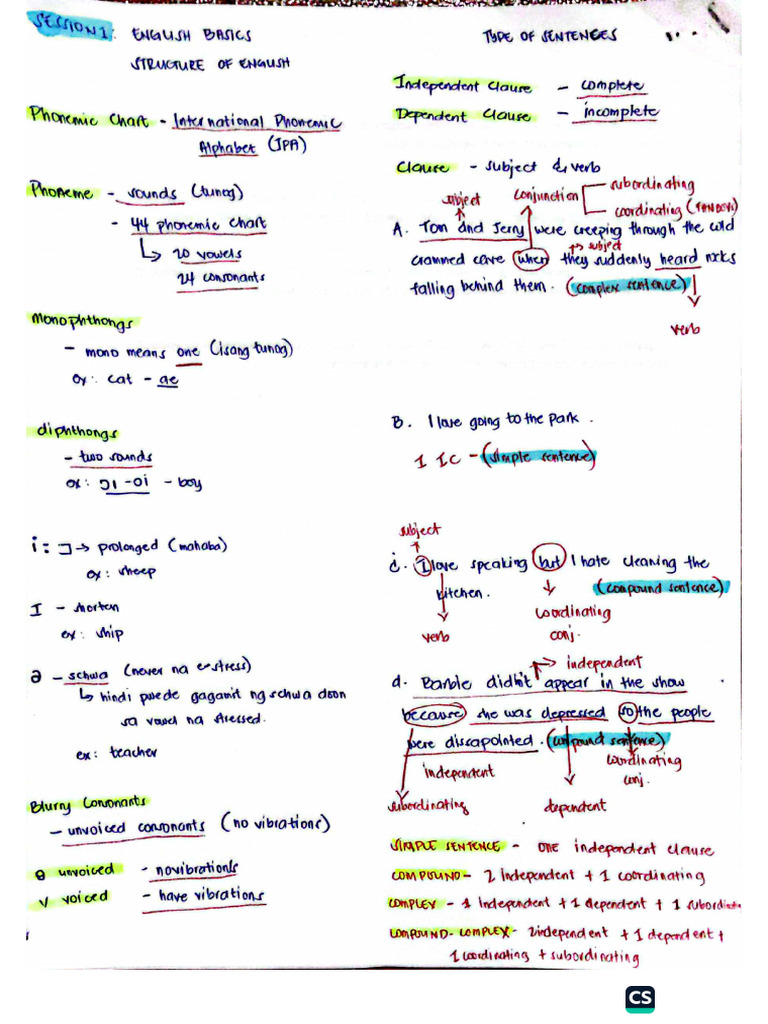 SESSION 1: ENGLISH BASICS
STRUCTURE OF ENGLISH
Phonemic Chart - International Phonemic
Alphabet (IPA)
Phoneme - sounds (tunog)
- 44 phonemic chart
↳ 20 vowels
24 consonants
monophthongs
- mono means one (isang tunog)
ex: cat - ae
diphthongs
- two sounds
ex: ɔɪ - oi - boy
→ prolonged (mahaba)
ex: sheep
I - shorten
ex: ship
ə - schwa (never na e-stress)
↳ hindi pwede gagamit ng schwa doon
sa vowel na stressed.
ex: teacher
Blurry Consonants
- unvoiced consonants (no vibrations)
θ unvoiced - no vibrations
v voiced - have vibrations
TYPE OF SENTENCES
Independent Clause - complete
Dependent Clause - incomplete
Clause - subject & verb
subject conjunction subordinating
coordinating (FANBOYS)
A. Tom and Jerry were creeping through the cold
crammed cave when they suddenly heard rocks
subject
falling behind them. (complex sentence)
verb
B. I love going to the park.
1 IC - (simple sentence)
subject
C. I love speaking but I hate cleaning the
kitchen. (compound sentence)
verb coordinating
conj.
independent
d. Barbie didn't appear in the show
because she was depressed so the people
were dissapointed. (compound sentence)
independent coordinating
conj.
subordinating dependent
SIMPLE SENTENCE - ONE independent clause
COMPOUND - 2 Independent + 1 coordinating
COMPLEX - 1 Independent + 1 dependent + 1 subordin
COMPOUND-COMPLEX - 2 independent + 1 dependent +
1 coordinating + subordinating
CS